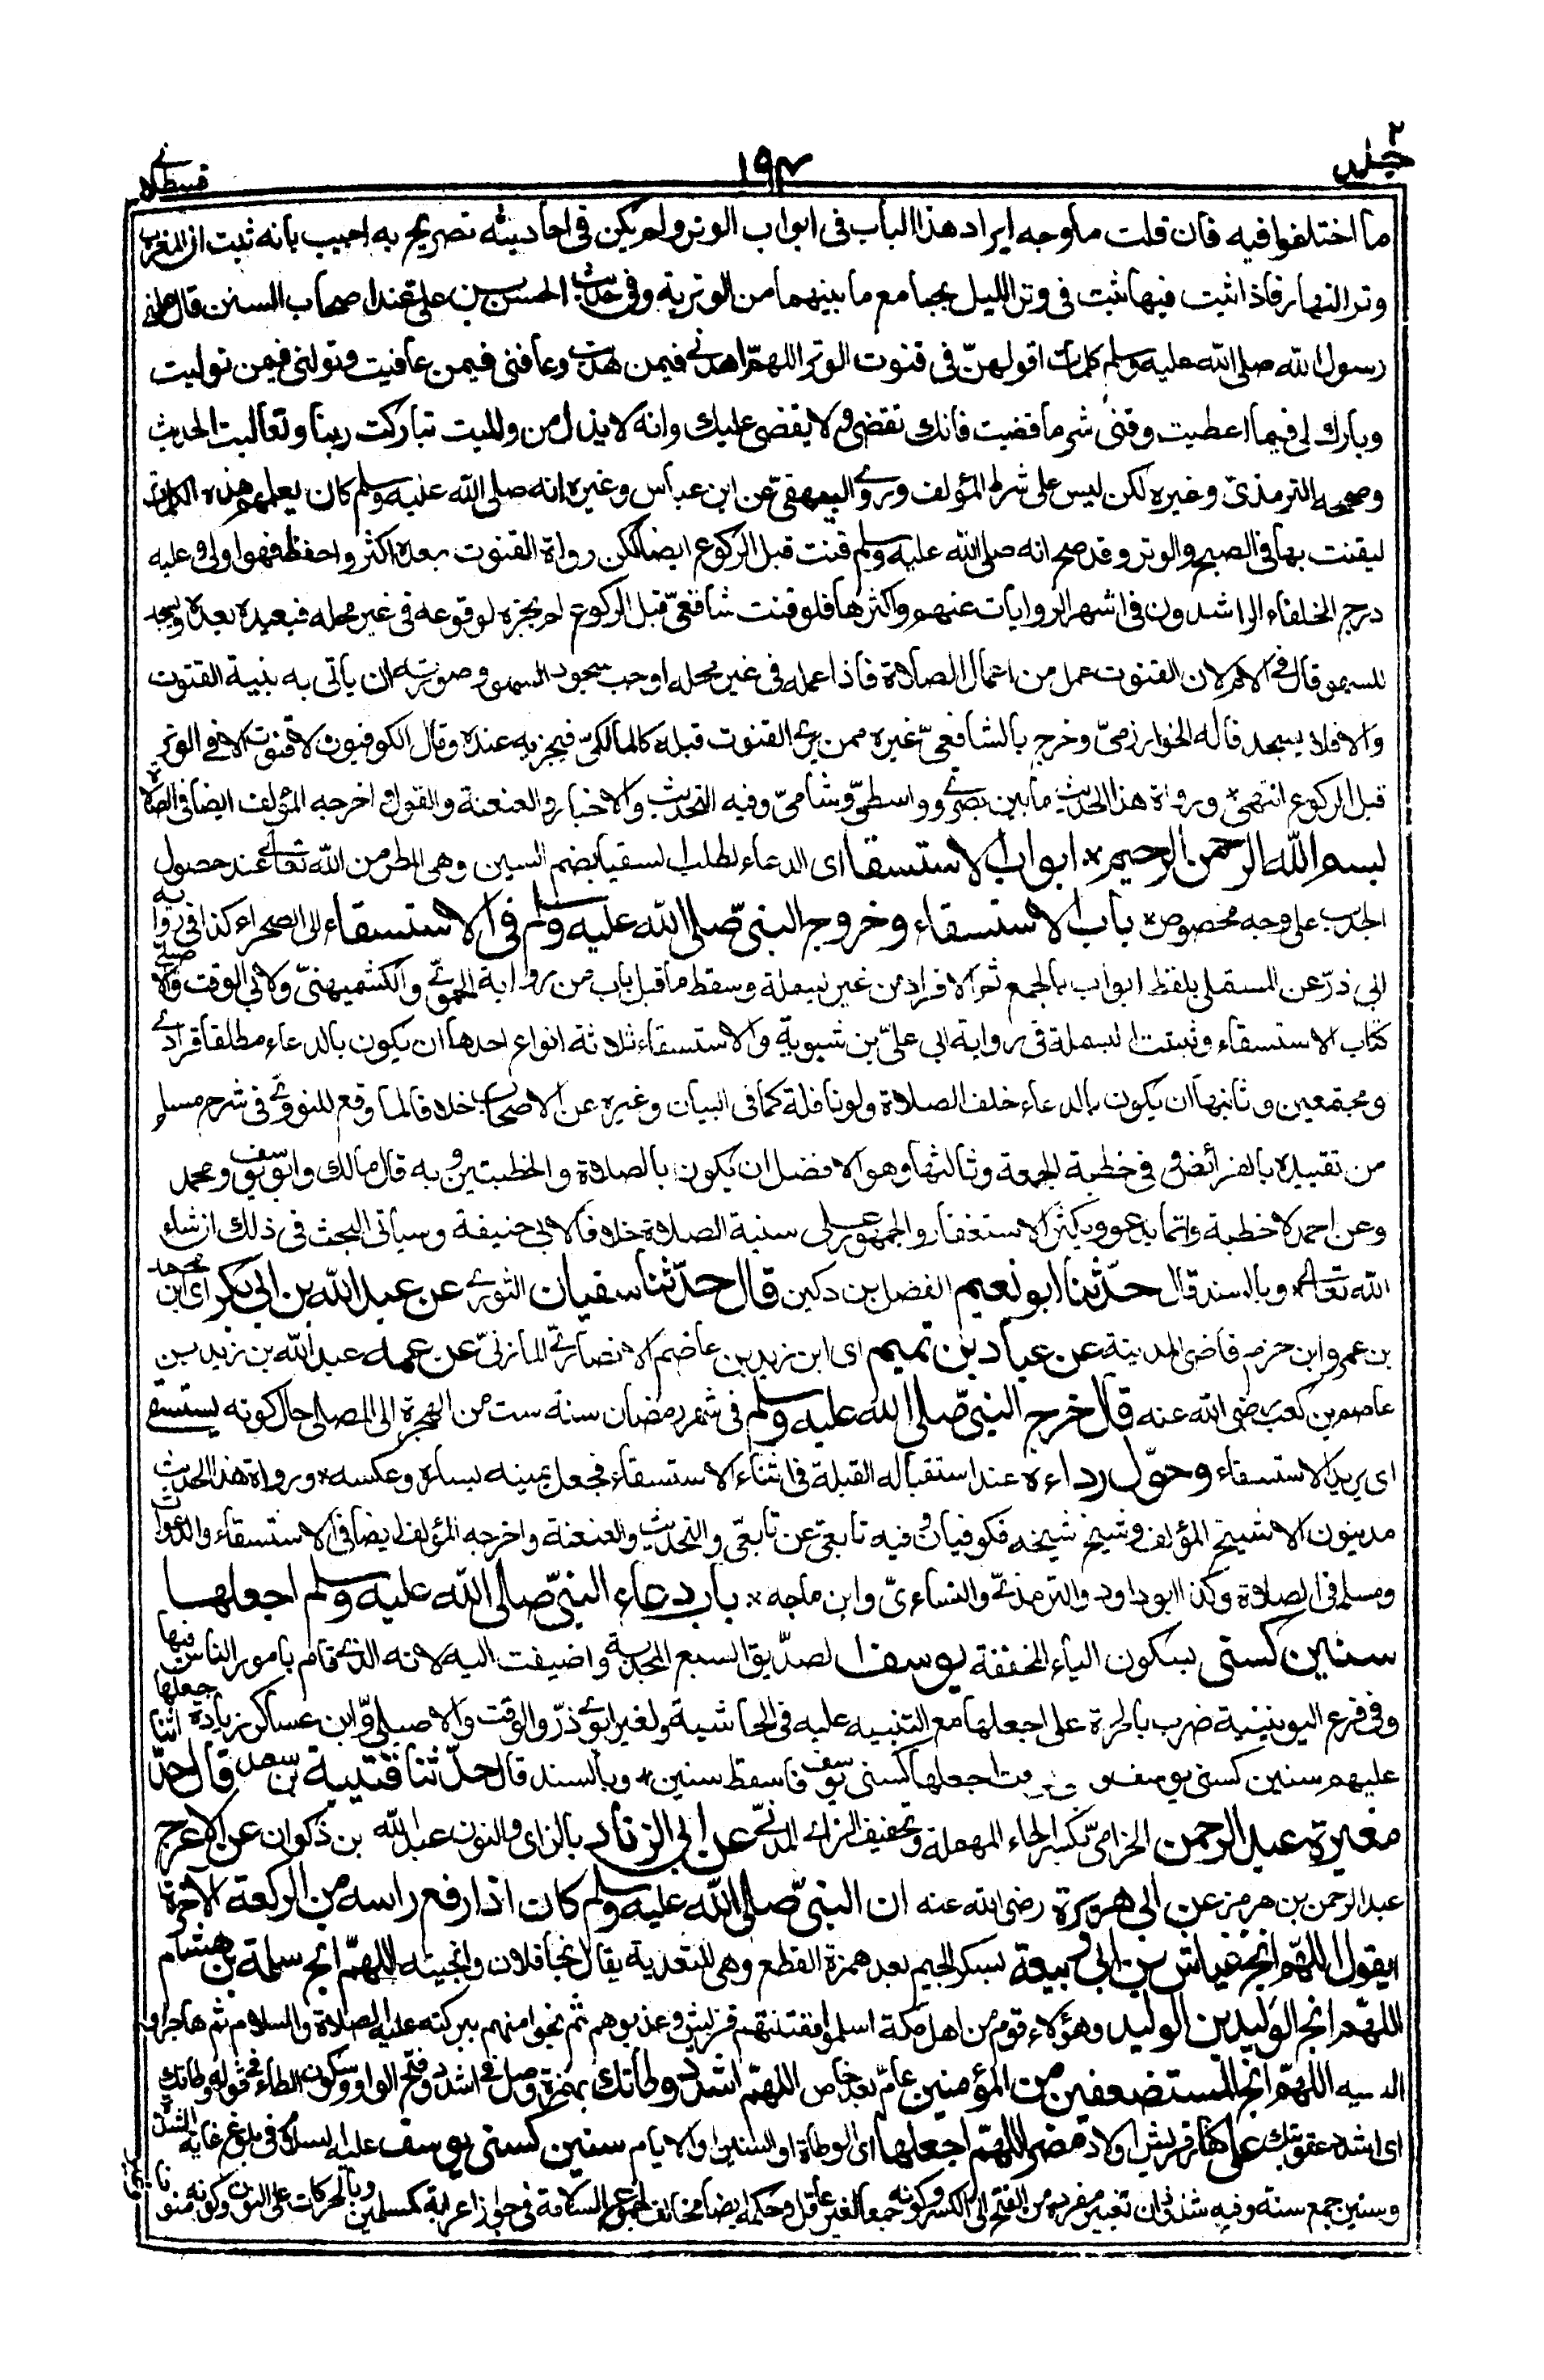 جلد ٢
١٩٤
قسطلانے
ما اختلفوا فيه فان قلت ما وجه ايراد هذا الباب فى ابواب الوتر ولم يكن فى احاديثه تصريح به اجيب بانه ثبت ان المغرب
وتر النهار فاذا ثبت فيها ثبت فى وتر الليل بجامع ما بينهما من الوترية وفى حديث الحسن بن على عند اصحاب السنن قال علمنى
رسول الله صلى الله عليه وسلم كلمات اقولهنّ فى قنوت الوتر اللهمّ اهدنے فيمن هديت وعافنى فيمن عافيت وتولنى فيمن توليت
وبارك لى فيما اعطيت وقنى شر ما قضيت فانك تقضى ولا يقضى عليك وانه لا يذل من واليت تباركت ربنا وتعاليت الحديث
وصححه الترمذىّ وغيره لكن ليس على شرط المؤلف وروے البيهقىّ عن ابن عباس وغيره انه صلى الله عليه وسلم كان يعلمهم هذه الكلمات
ليقنت بها فى الصبح والوتر وقد صح انه صلى الله عليه وسلم قنت قبل الركوع ايضا لكن رواة القنوت بعده اكثر واحفظ فهو اولى وعليه
درج الخلفاء الراشدون فى اشهر الروايات عنهم واكثرها فلو قنت شافعىّ قبل الركوع لم يجزه لوقوعه فى غير محله فيعيده بعده ويسجد
للسهو قال فى الام لان القنوت عمل من اعمال الصلاة فاذا عمله فى غير محله اوجب سجود السهو وصورته ان ياتى به بنية القنوت
والا فلا يسجد قاله الخوارزمىّ وخرج بالشافعىّ غيره ممن يرے القنوت قبله كالمالكىّ فيجزيه عنده وقال الكوفيون لا قنوت الا فے الوتر
قبل الركوع انتهى * ورواة هذا الحديث ما بين بصرے وواسطىّ وشامىّ وفيه التحديث والاخبار والعنعنة والقول واخرجه المؤلف ايضا فى الصلاة
بسم الله الرحمن الرحيم * ابواب الاستسقا اى الدعاء لطلب السقيا بضم السين وهى المطر من الله تعالے عند حصول
الجدب على وجه مخصوص * باب الاستسقاء وخروج النبىّ صلى الله عليه وسلم فى الاستسقاء الى الصحراء كذا فى رواية
ابى ذرّ عن المستملى بلفظ ابواب بالجمع ثم الافراد من غير بسملة وسقط ما قبل باب من رواية الحموىّ والكشميهنىّ ولابى الوقت والاصيلىّ
كتاب الاستسقاء وثبتت البسملة فى رواية ابى علىّ بن شبوية والاستسقاء ثلاثة انواع احدها ان يكون بالدعاء مطلقا فرادے
ومجتمعين وثانيها ان يكون بالدعاء خلف الصلاة ولو نافلة كما فى البيان وغيره عن الاصحاب خلافا لما وقع للنووىّ فى شرح مسلم
من تقييده بالفرائض وفى خطبة الجمعة وثالثها وهو الافضل ان يكون بالصلاة والخطبتين وبه قال مالك وابو يوسف ومحمد
وعن احمد لا خطبة وانما يدعو ويكثر الاستغفار والجمهور على سنية الصلاة خلافا لابى حنيفة وسياتى البحث فى ذلك ان شاء
الله تعالے * وبالسند قال حدّثنا ابو نعيم الفضل بن دكين قال حدّثنا سفيان الثورے عن عبد الله بن ابى بكر اى ابن محمد
بن عمرو ابن حزم قاضى المدينة عن عباد بن تميم اى ابن زيد بن عاصم الانصارىّ المازنىّ عن عمه عبد الله بن زيد بن
عاصم بن كعب رضى الله عنه قال خرج النبىّ صلى الله عليه وسلم فى شهر رمضان سنة ست من الهجرة الى المصلى حال كونه يستسقے
اى يريد الاستسقاء وحوّل رداءه عند استقباله القبلة فى اثناء الاستسقاء فجعل يمينه يساره وعكسه * ورواة هذا الحديث
مدينون الا شيخ المؤلف وشيخ شيخه فكوفيان وفيه تابعىّ عن تابعىّ والتحديث والعنعنة واخرجه المؤلف ايضا فى الاستسقاء والدعوات
ومسلم فى الصلاة وكذا ابو داود والترمذىّ والنساءىّ وابن ماجه * باب دعاء النبىّ صلى الله عليه وسلم اجعلها
سنين كسنى بسكون الياء المخففة يوسف الصدّيق السبع المجدبة واضيفت اليه لانه الذے قام بامور الناس فيها
وفى فرع اليونينية ضرب بالحمرة على اجعلها مع التنبيه عليه فى الحاشية ولغير ابوے ذرّ والوقت والاصيلىّ وابن عساكر زيادة اجعلها
عليهم سنين كسنى يوسف اجعلها كسنى يوسف فاسقط سنين * وبالسند قال حدّثنا قتيبة بن سعد قال حدّثنا
مغيرة بن عبد الرحمن الحزامىّ بكسر الحاء المهملة وتخفيف الزاے المدنىّ عن ابى الزناد بالزاى والنون عبد الله بن ذكوان عن الاعرج
عبد الرحمن بن هرمز عن ابى هريرة رضى الله عنه ان النبىّ صلى الله عليه وسلم كان اذا رفع راسه من الركعة الاخرة
يقول اللهمّ انج عياش بن ابى ربيعة بكسر الجيم بعد همزة القطع وهى للتعدية يقال نجا فلان وانجيته اللهمّ انج سلمة بن هشام
اللهمّ انج الوليد بن الوليد وهؤلاء قوم من اهل مكة اسلموا ففتنتهم قريش وعذبوهم ثم نجوا منهم ببركته عليه الصلاة والسلام ثم هاجروا
اليه اللهمّ انج المستضعفين من المؤمنين عامّ بعد خاص اللهمّ اشدد وطاتك بهمزة وصل فى اشدد وفتح الواو وسكون الطاء فے قوله وطاتك
اى اشدد عقوبتك على كفار قريش اولاد مضر اللهمّ اجعلها اى الوطاة او السنين او الايام سنين كسنى يوسف عليه السلام فى بلوغ غاية الشدّة
وسنين جمع سنة وفيه شذوذان تغيير مفرده من الفتح الى الكسر وكونه جمعا لغير عاقل وحكمه ايضا مخالف لجموع السلامة فى جواز اعرابه كمسلمين وبالحركات على النون وكونه منونا